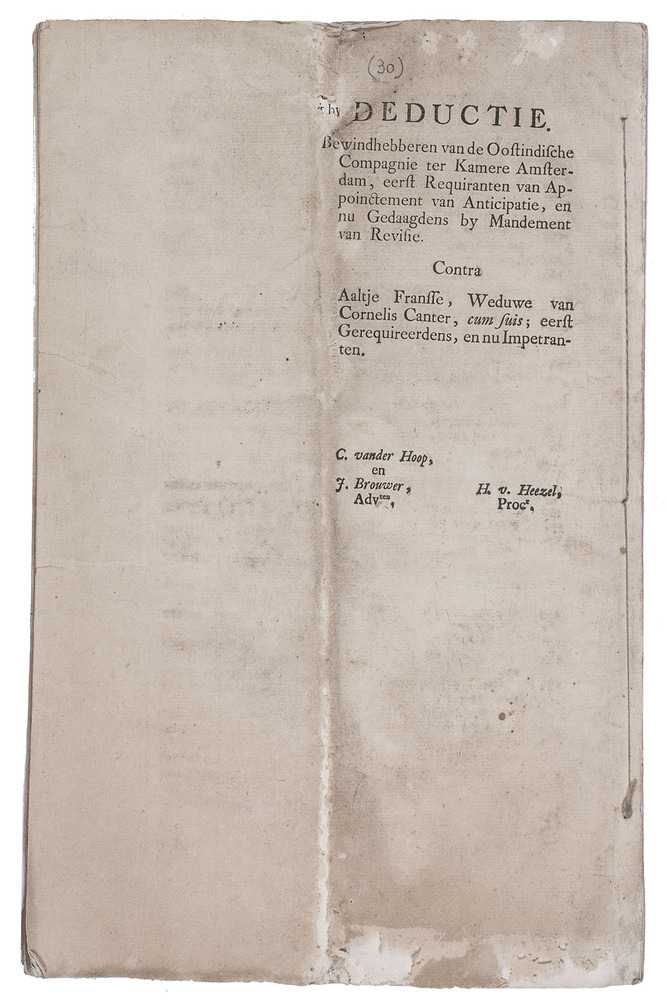 (30)
by DEDUCTIE.
Bewindhebberen van de Ooſtindiſche
Compagnie ter Kamere Amſter-
dam, eerſt Requiranten van Ap-
poinctement van Anticipatie, en
nu Gedaagdens by Mandement
van Reviſie.
Contra
Aaltje Franſſe, Weduwe van
Cornelis Canter, cum ſuis; eerſt
Gerequireerdens, en nu Impetran-
ten.
C. vander Hoop,
en
J. Brouwer,
Adv^ten,
H. v. Heezel,
Proc^r,